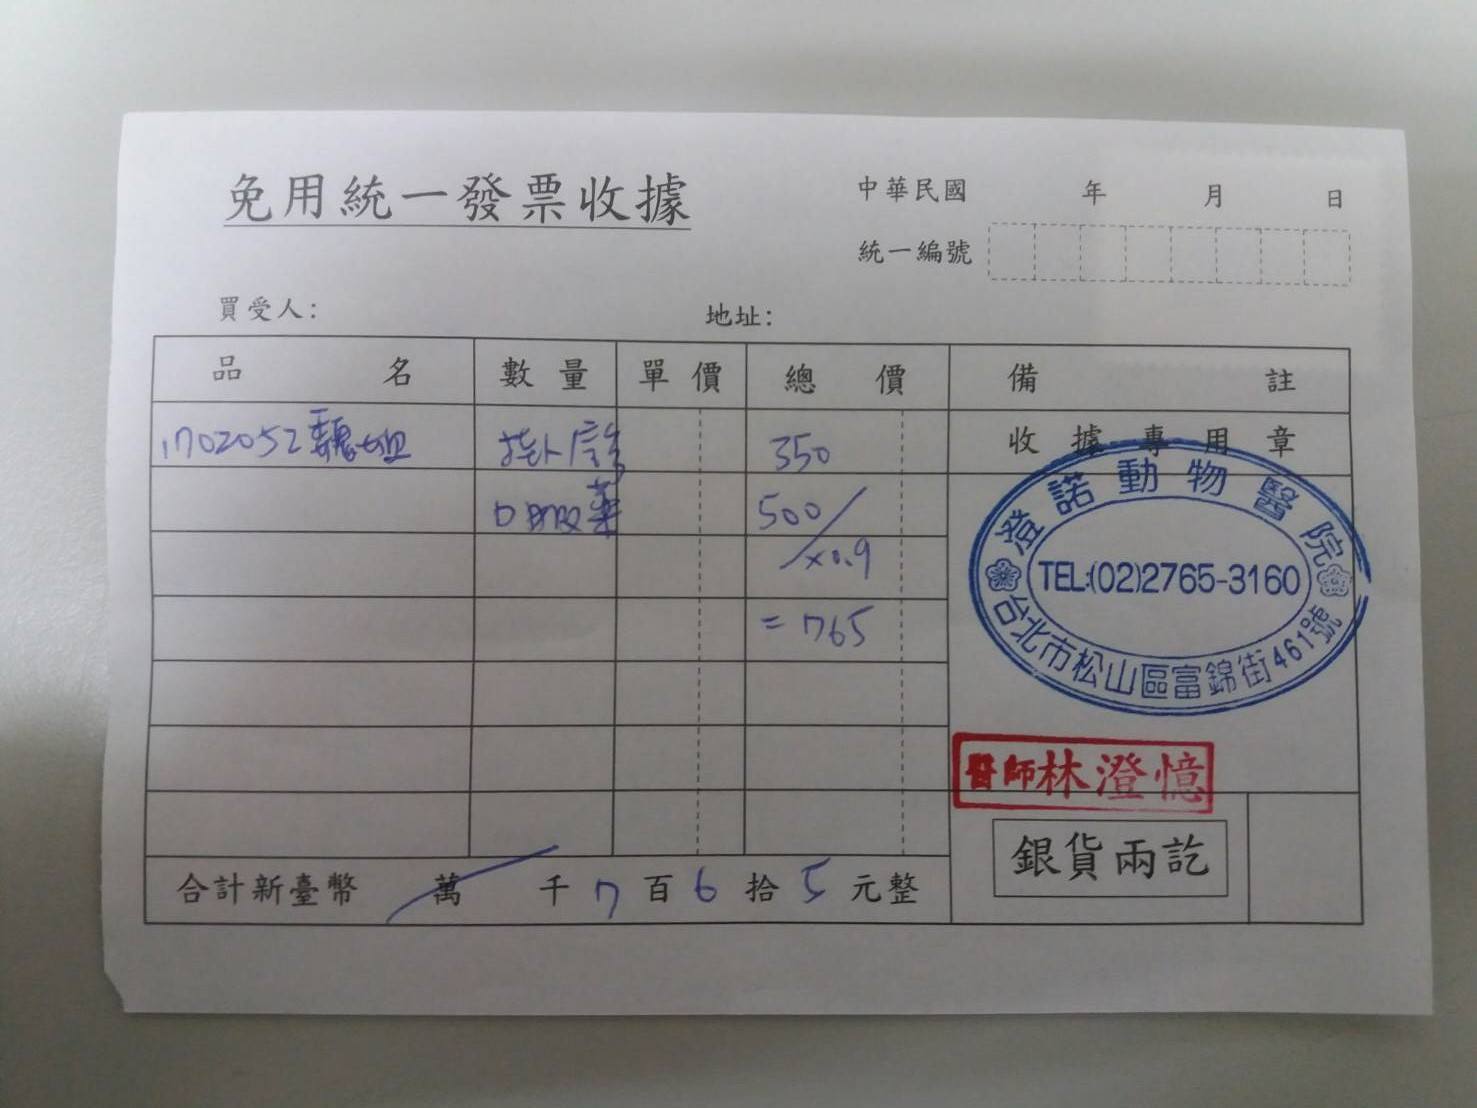 免用統一發票收據
中華民國 年 月 日
統一編號
買受人： 地址：
品名 數量 單價 總價 備註
1702052 魏姐 掛診 350 收據專用章
口服藥 500
×0.9
= 765
澄諾動物醫院
TEL:(02)2765-3160
台北市松山區富錦街461號
醫師林澄憶
銀貨兩訖
合計新臺幣 萬 千 7 百 6 拾 5 元整